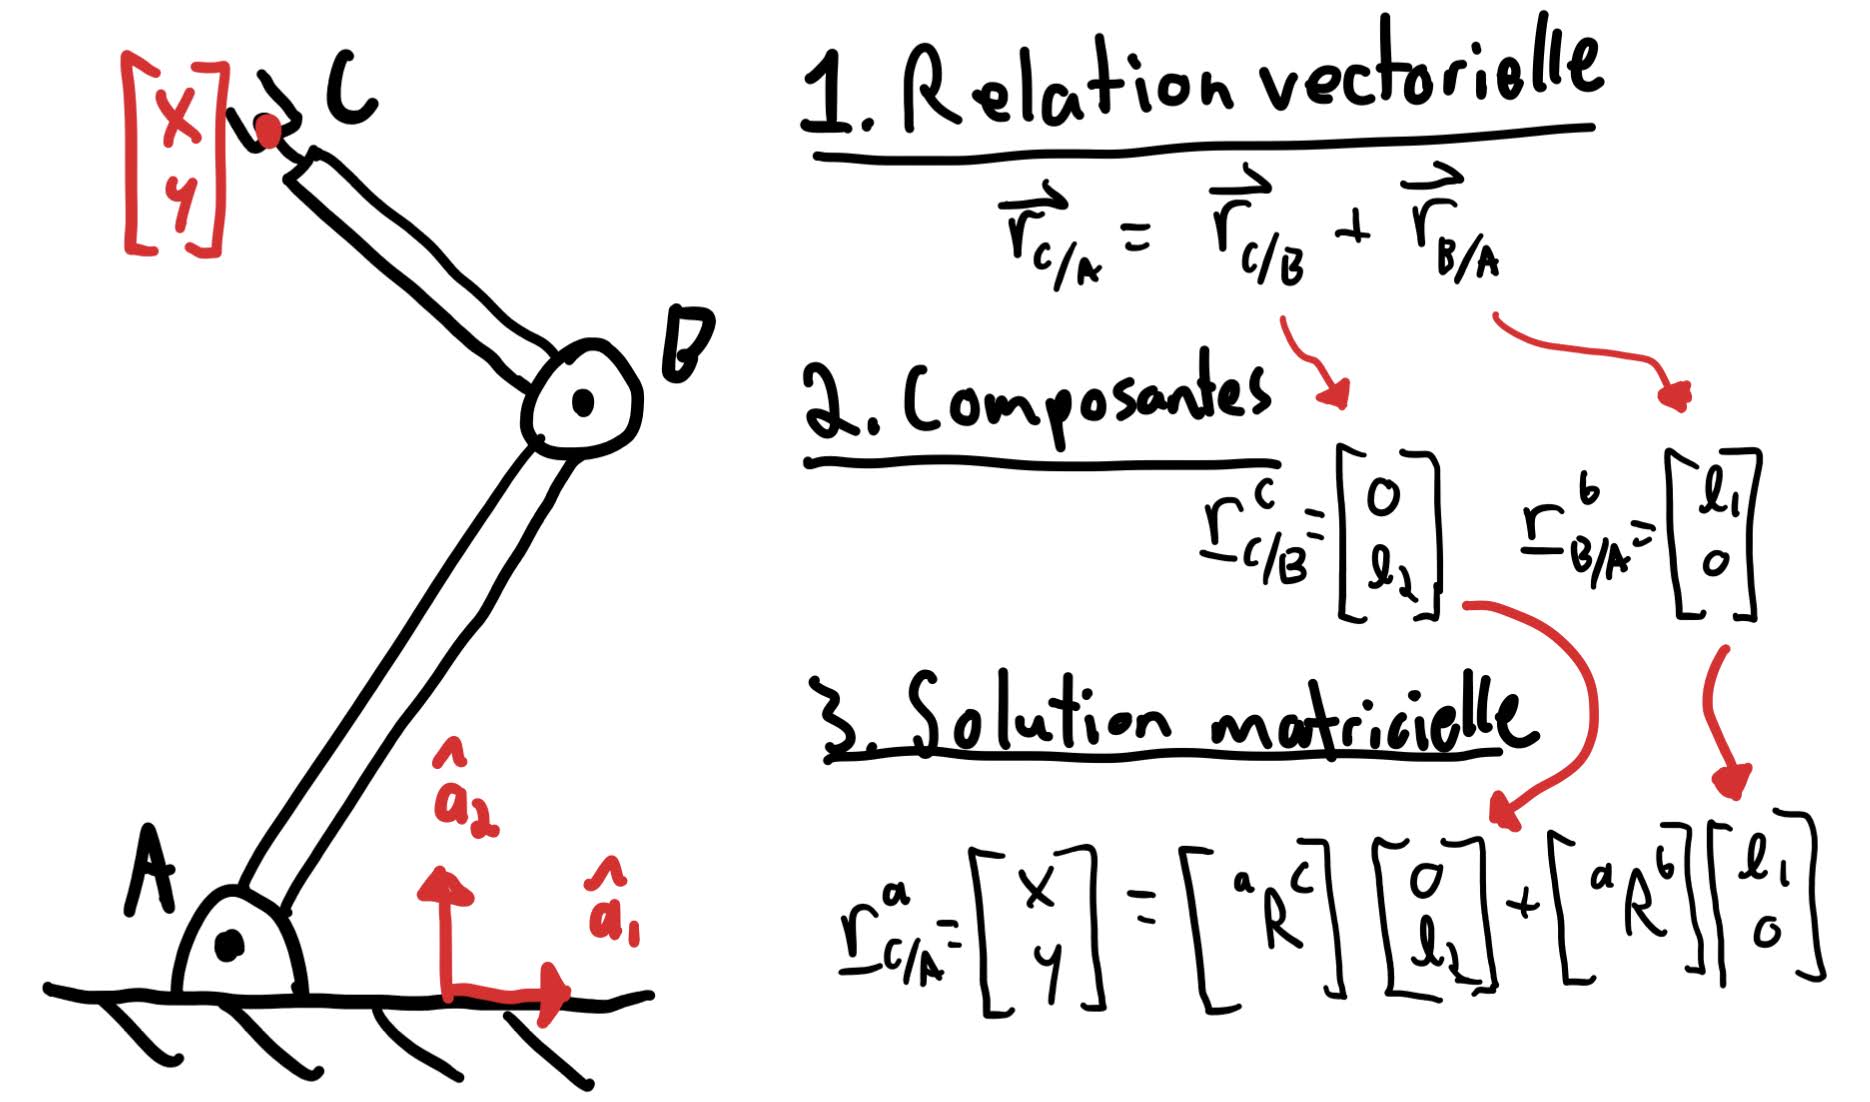 C
[x
y]
B
A
â₂
â₁
1. Relation vectorielle
r⃗_C/A = r⃗_C/B + r⃗_B/A
2. Composantes
r^c_C/B = [0
l₂]
r^b_B/A = [l₁
0]
3. Solution matricielle
r^a_C/A = [x
y] = [^aR^c] [0
l₂] + [^aR^b] [l₁
0]